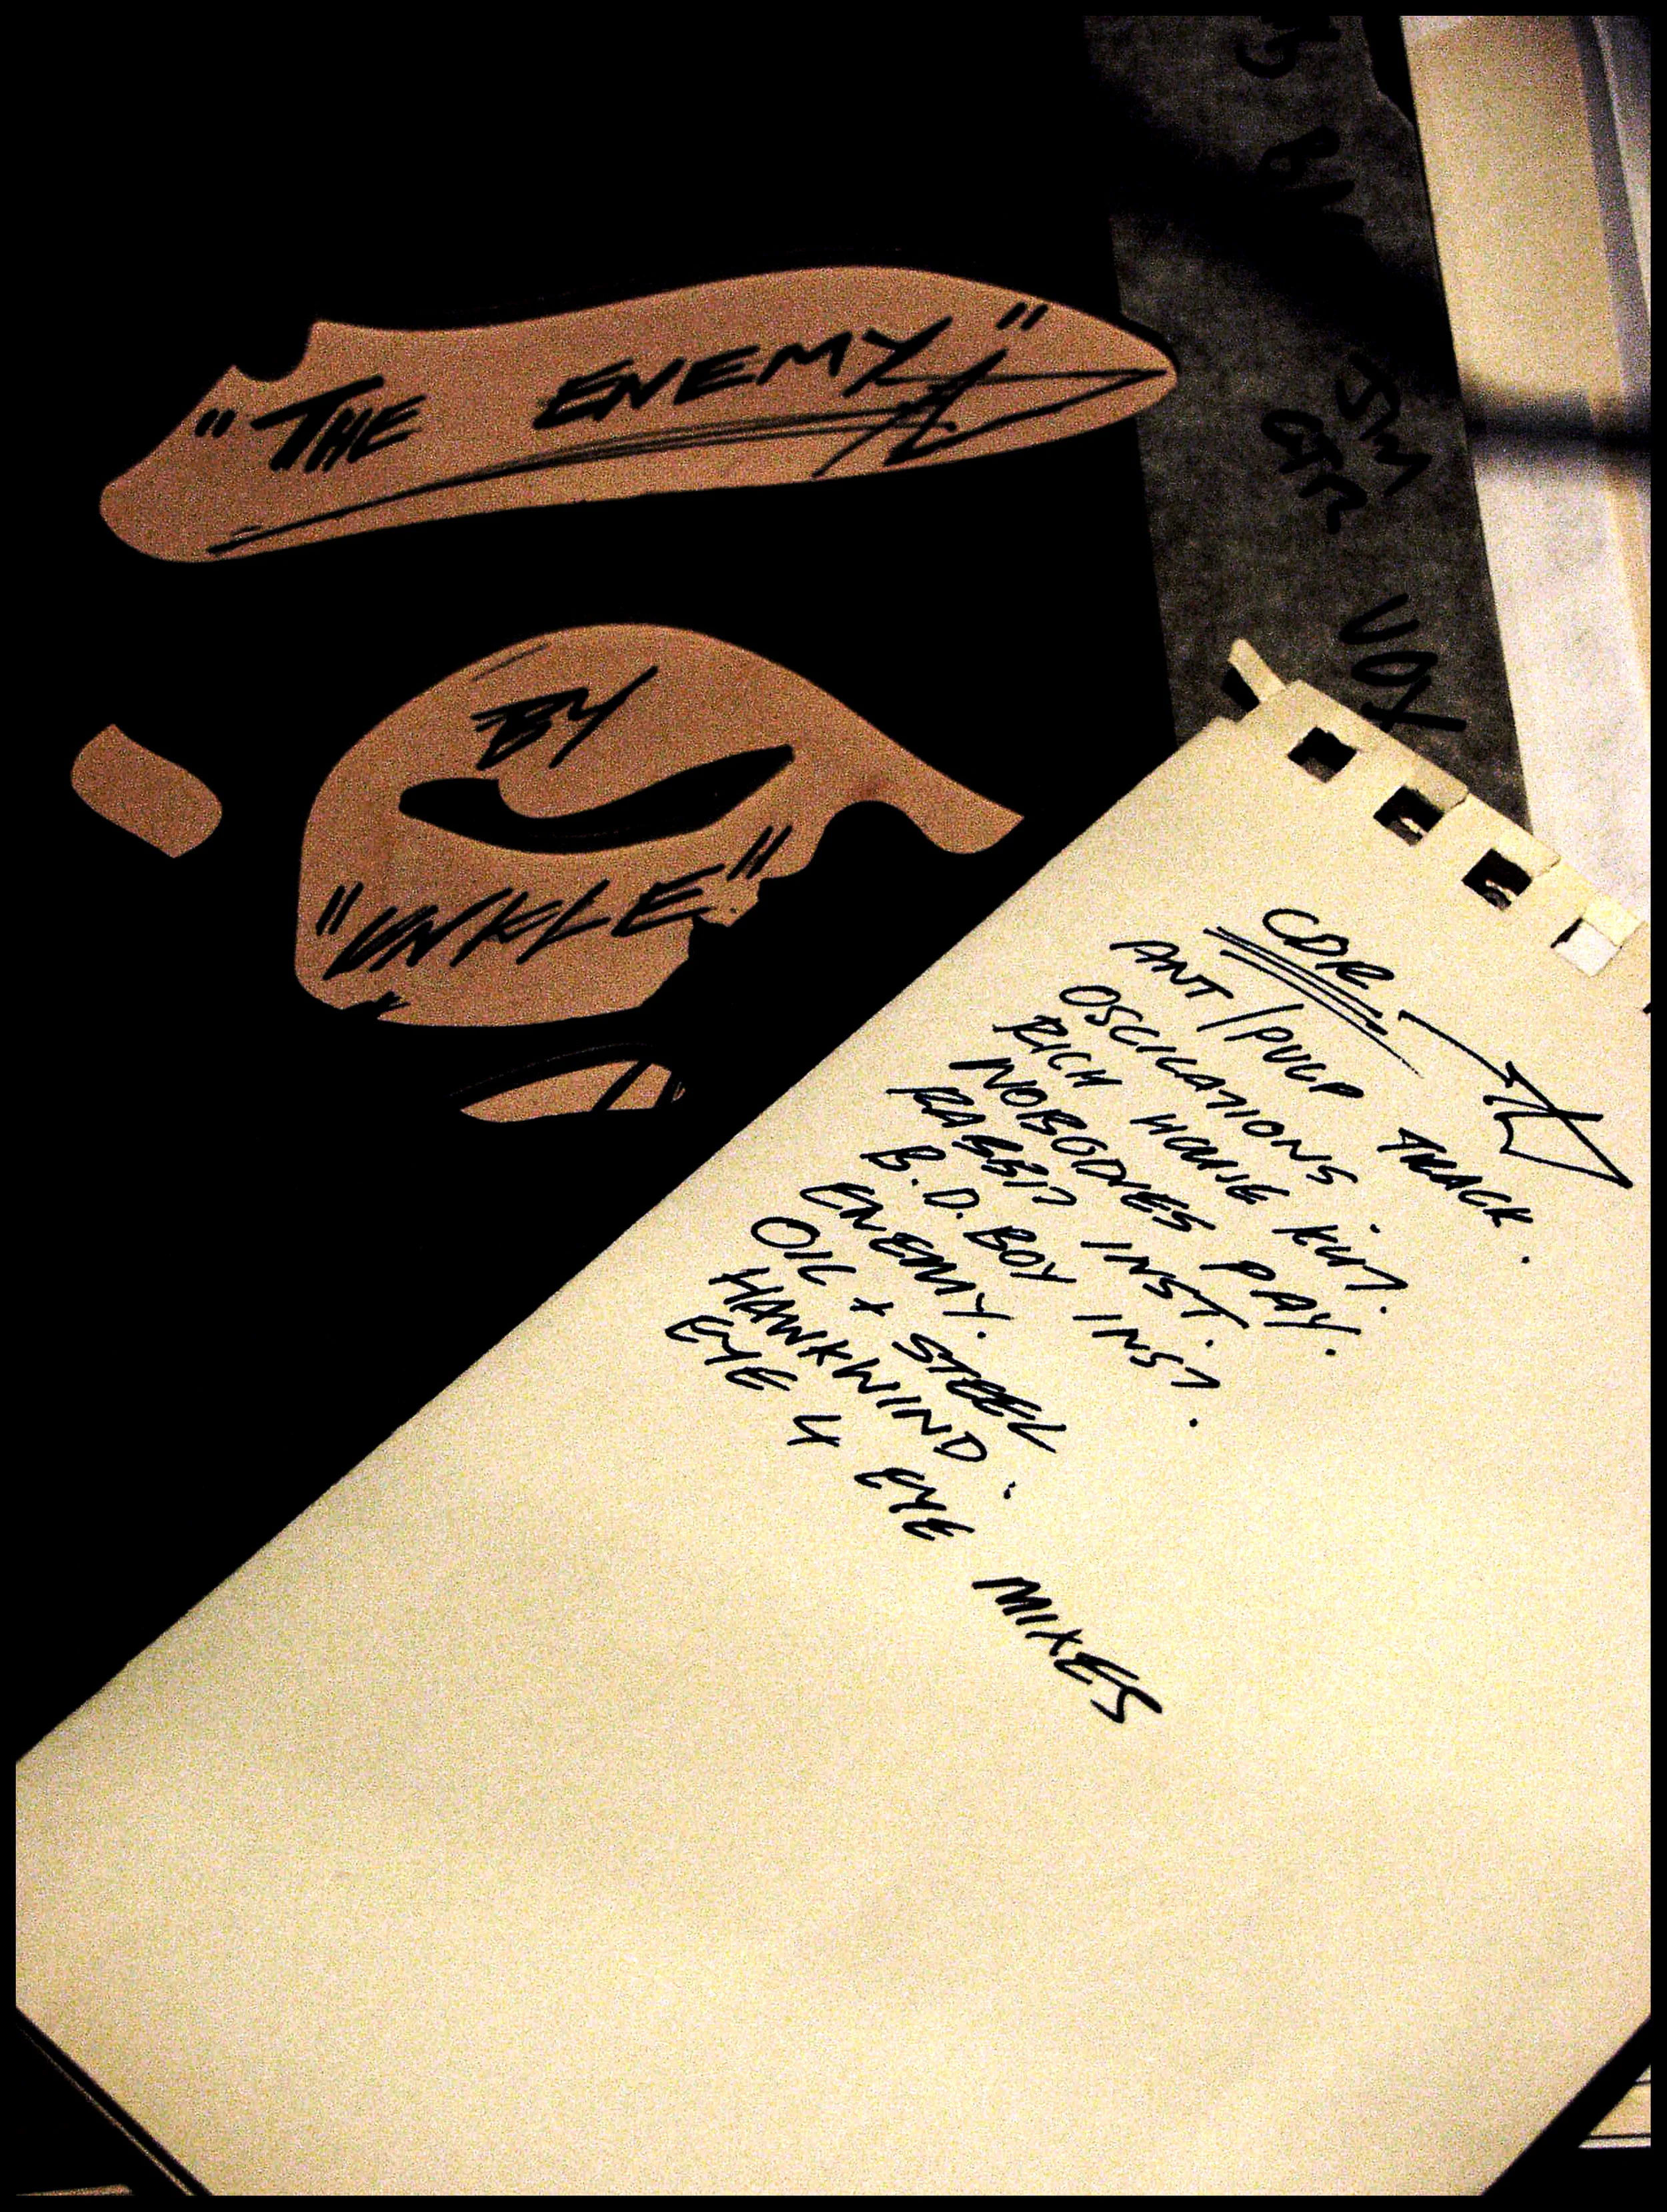 "THE ENEMY"
BY
"UNKLE"
JIM
GTR
VOX
CDR
ANT/PULP TRACK.
OSCILATIONS
RICH HOUSE KUT.
NOBODIES PAY.
RABBIT INST.
B.D. BOY INST.
ENEMY.
OIL + STEEL
HAWKWIND.
EYE 4 EYE MIXES